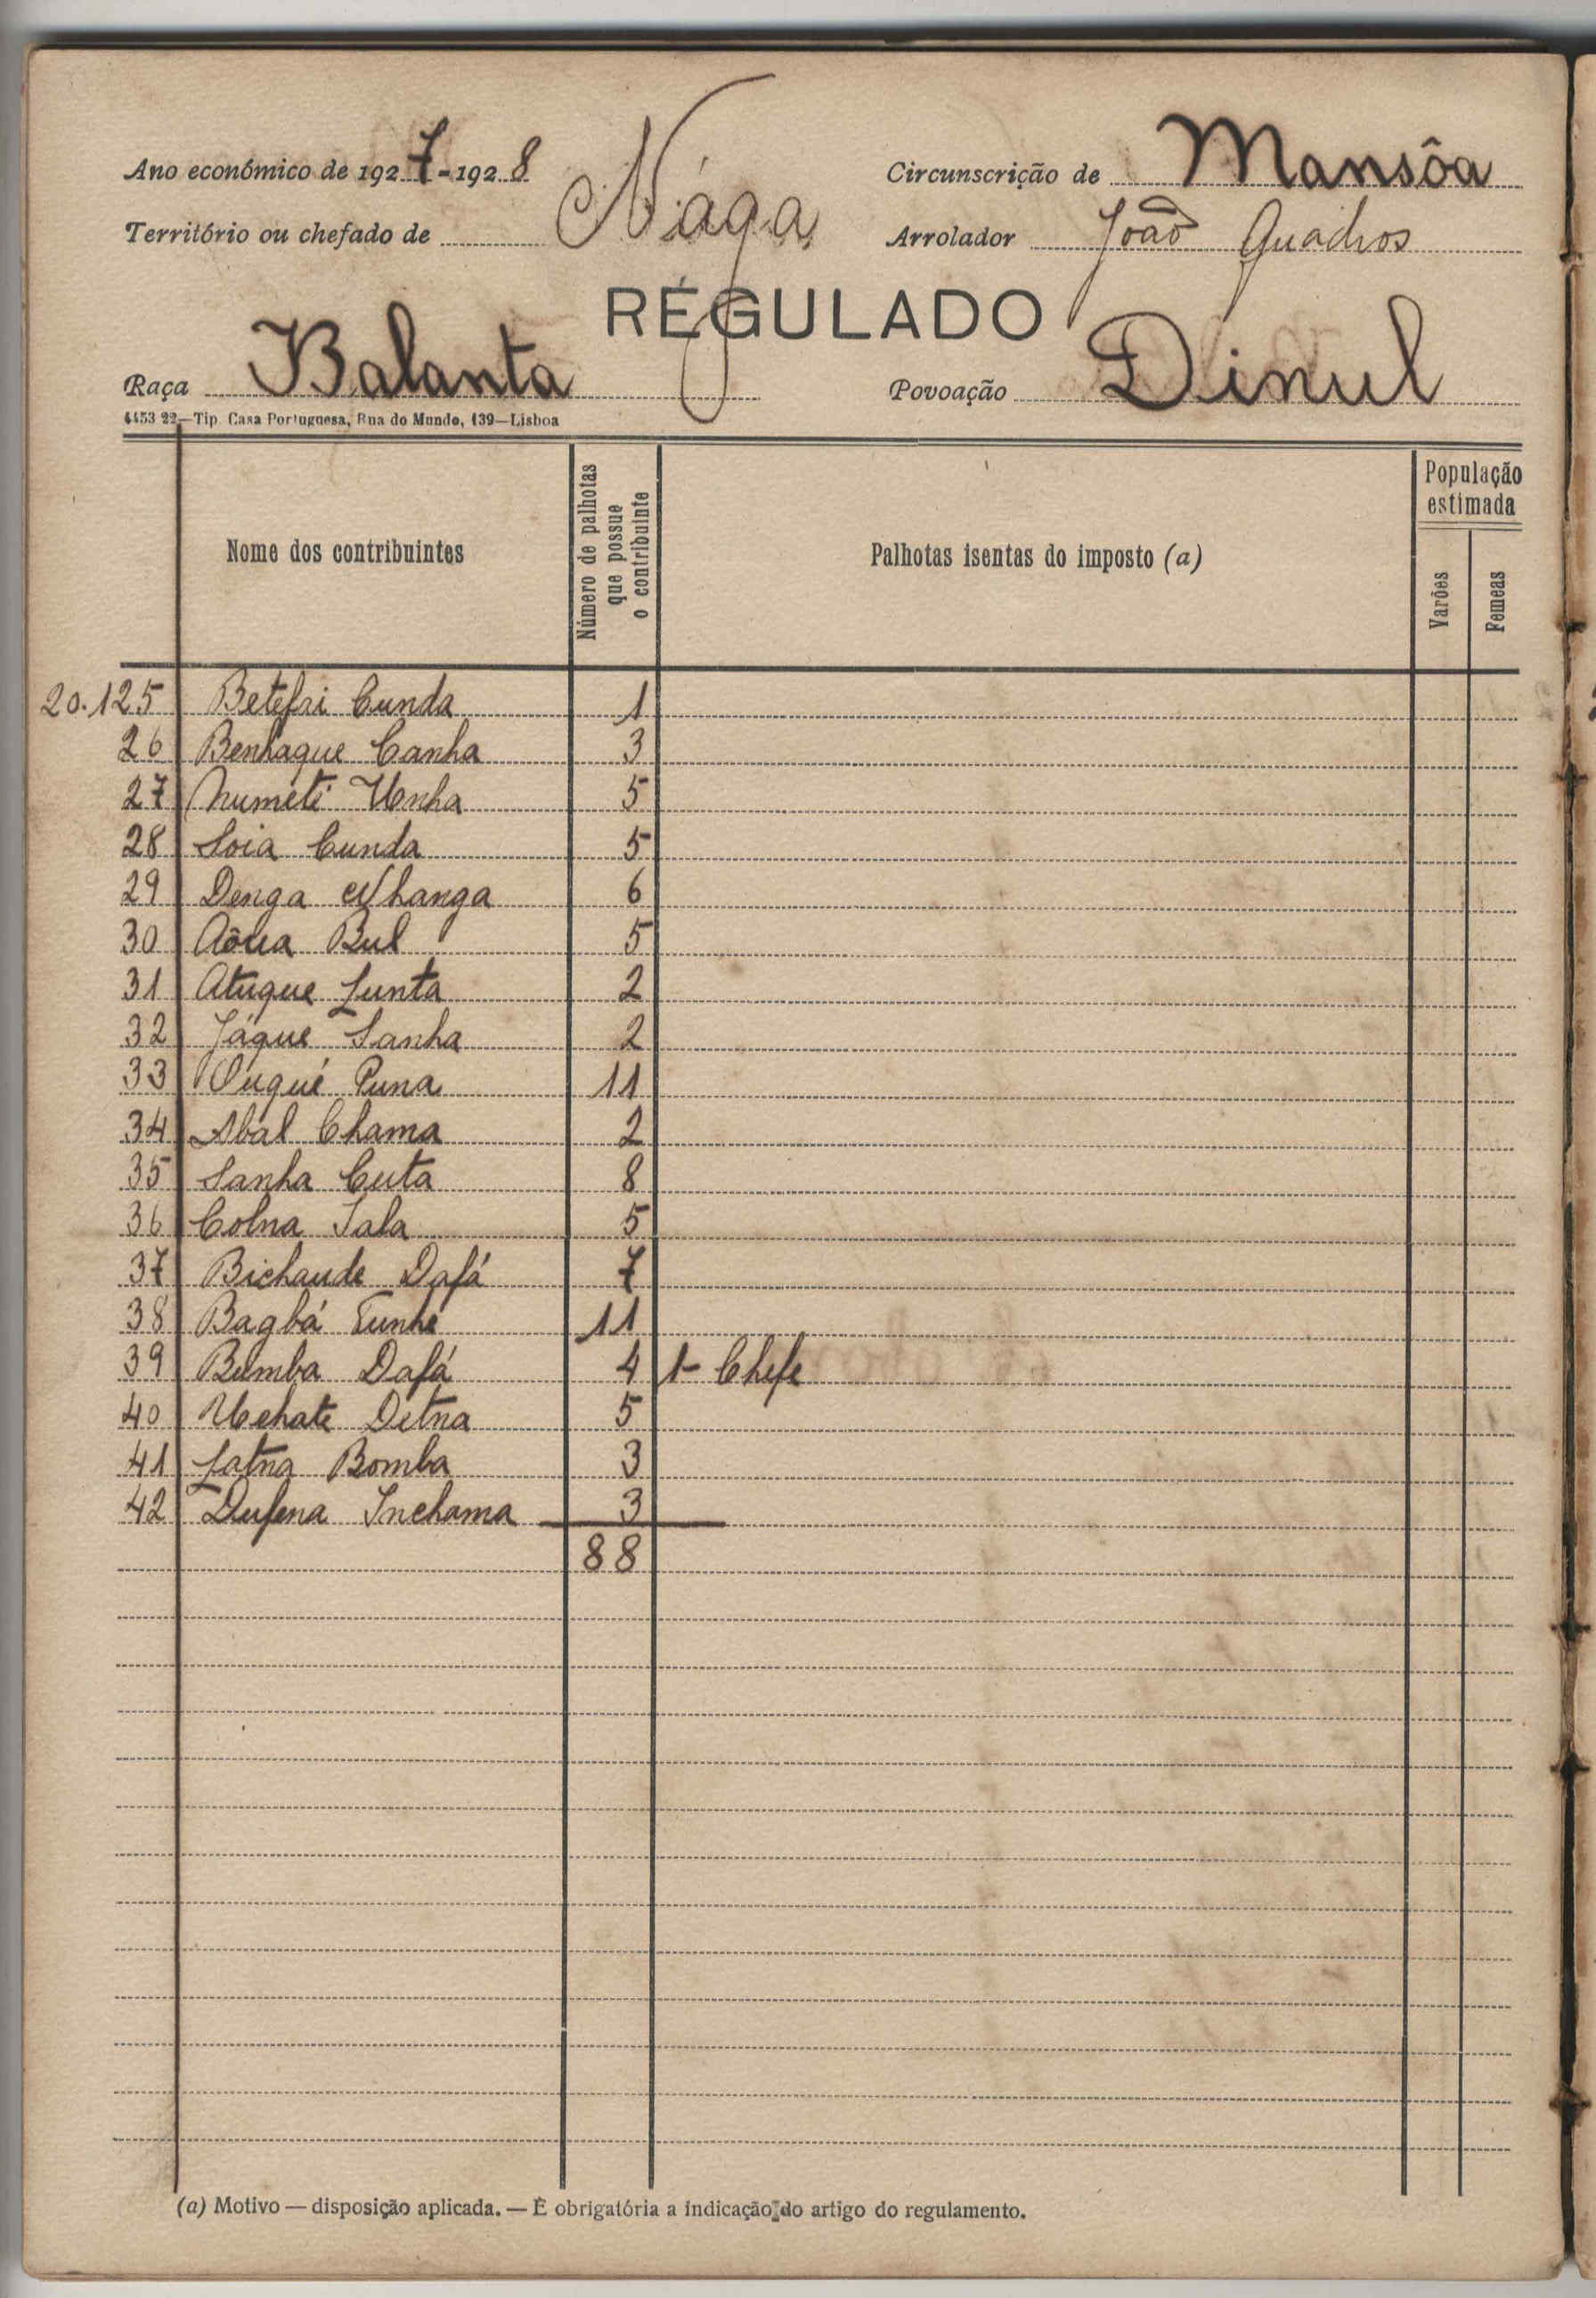 Ano económico de 1927-1928
Território ou chefado de Nága
Circunscrição de Mansôa
Arrolador João Quadros
RÉGULADO
Raça Balanta
Povoação Dinul
4453 22—Tip. Casa Portuguesa, Rua do Mundo, 139—Lisboa
Nome dos contribuintes
Número de palhotas que possue o contribuinte
Palhotas isentas do imposto (a)
População estimada
Varões
Femeas
20.125 Betefai Cunda 1
26 Benhaque Canha 3
27 Numeté Unha 5
28 Soia Cunda 5
29 Denga Nhanga 6
30 Aôua Bul 5
31 Atuque Junta 2
32 Jáque Sanha 2
33 Ouqué Puna 11
34 Abal Chama 2
35 Sanha Cuta 8
36 Colna Sala 5
37 Bichaude Dafá 7
38 Bagbá Tunhe 11
39 Bumba Dafá 4 1- Chefe
40 Uchate Ditna 5
41 Latna Bomba 3
42 Dufena Inchama 3
88
(a) Motivo — disposição aplicada. — É obrigatória a indicação do artigo do regulamento.